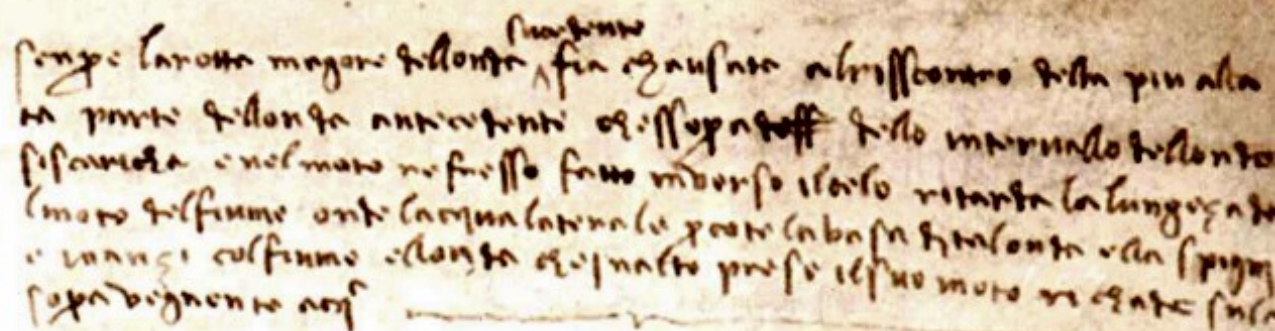 succedente
senpre larotta magore dellonda fia chausata alrisscontro della piu alta
ta parte dellonda antecedente chessopra dello intervallo dellonda
siscaricha e nel moto refresso fatto inverso ilcielo ritarda la lungeza de
lmoto del fiume onde lacqua laterale percote la basa di tal onda ella spigne
e inanzi col fiume ellonda cheinalto prese ilsuo moto richade sula
sopra vegnente acq